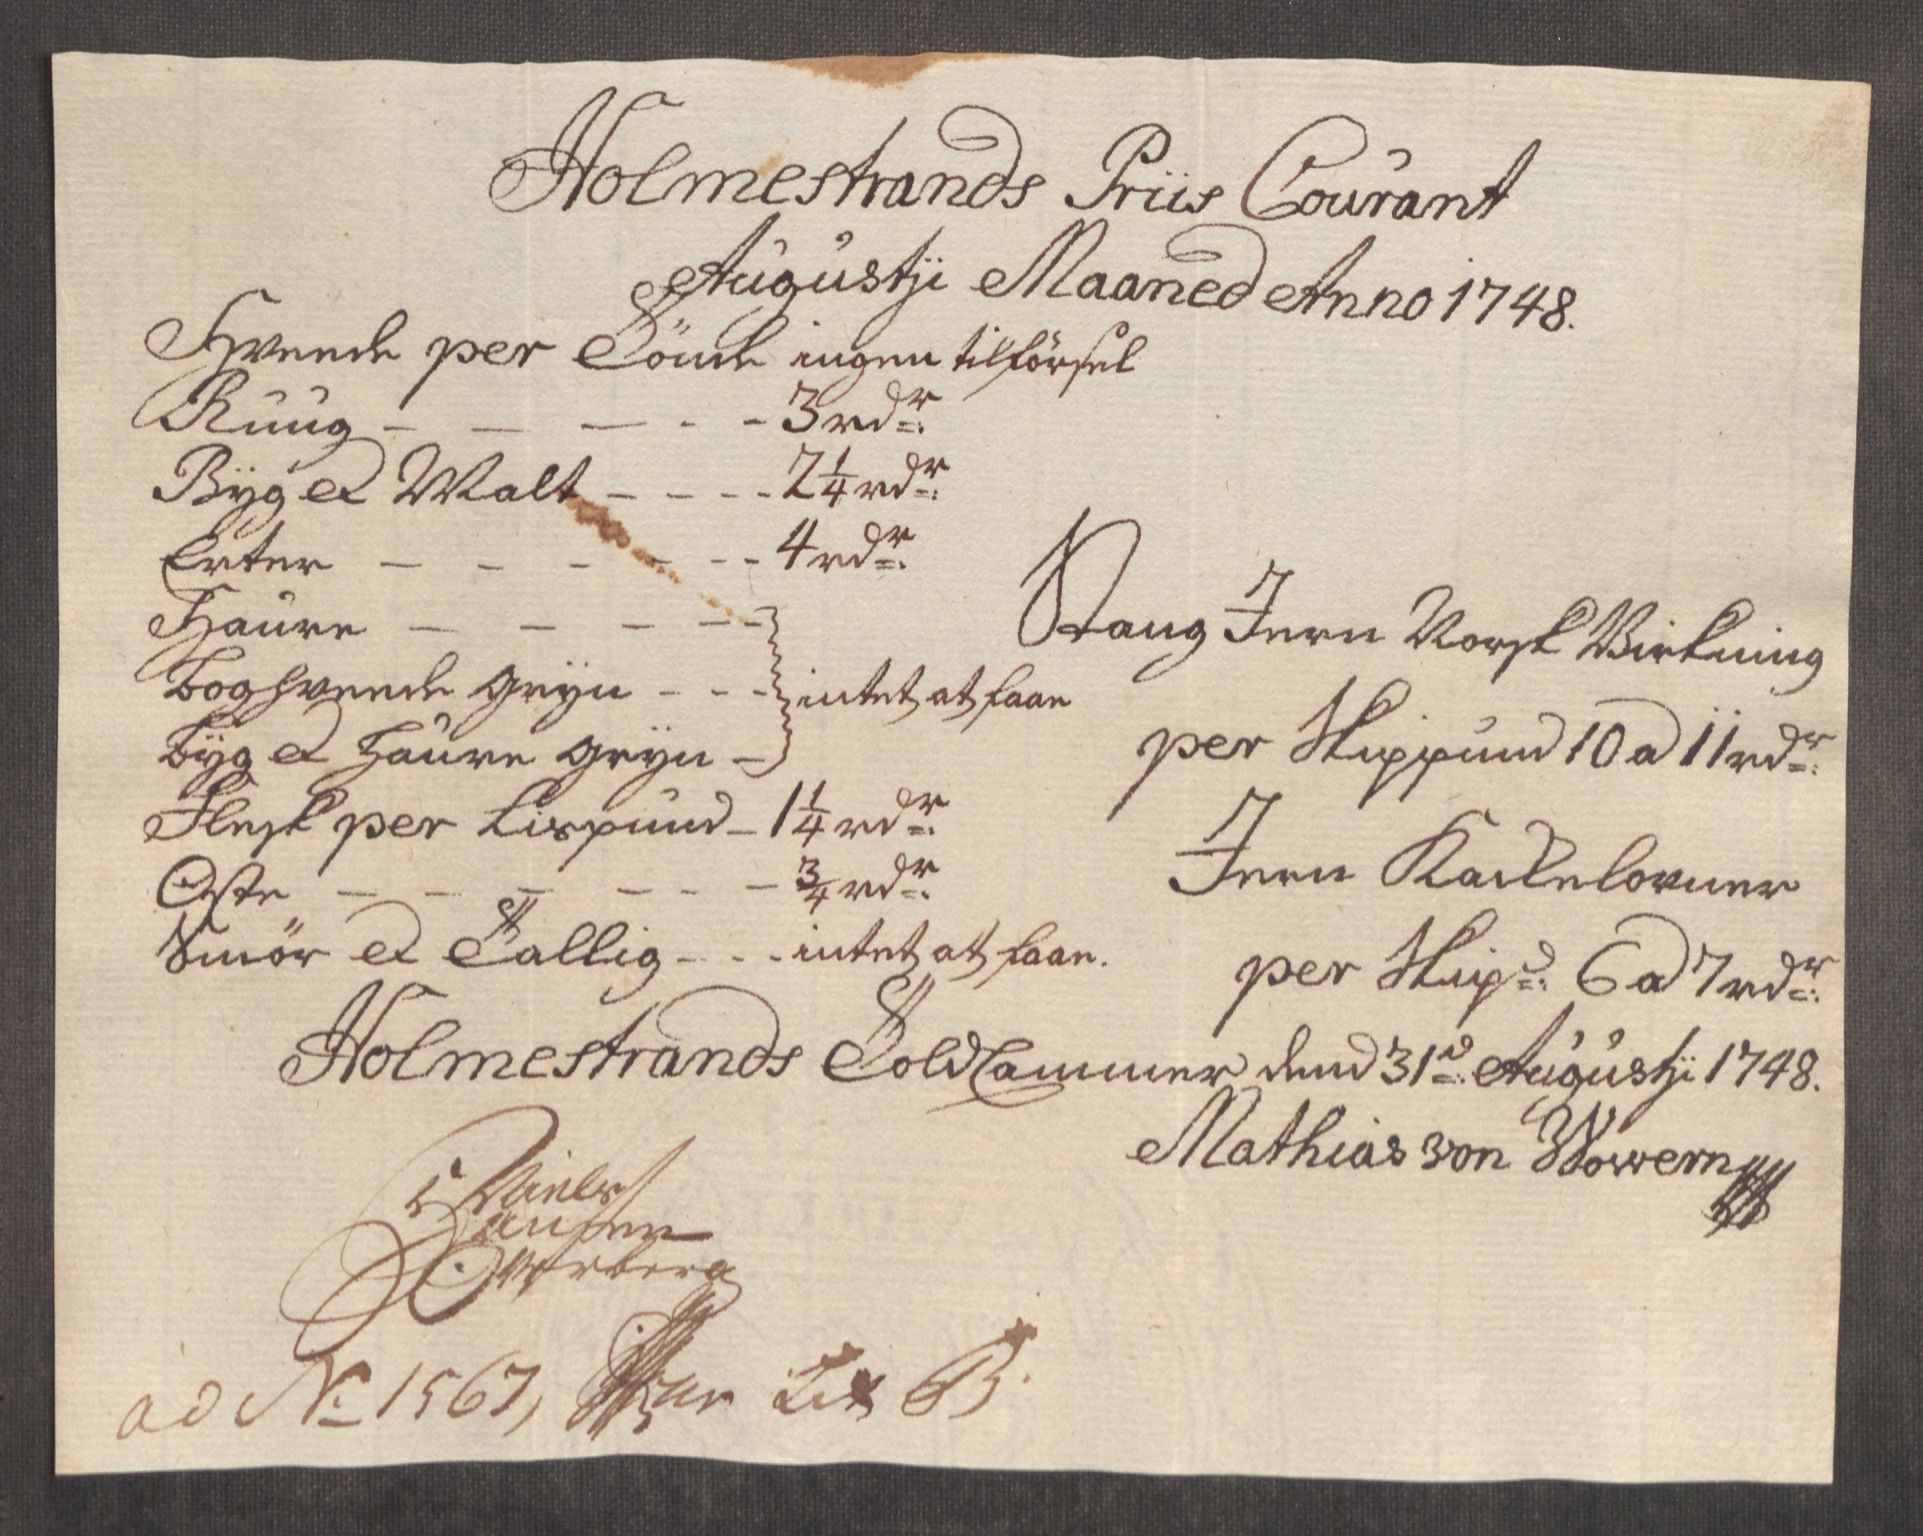 Holmestrands Priis Courant
Augustji Maaned Anno 1748.
Hveede per Tönde ingen tilförsel
Ruug - - - - - 3 rdr
Byg et Malt - - - - 2 1/4 rdr
Erter - - - - - - 4 rdr
Haure - - - - -
Boghveede Gryn - - - intet at faae
Byg et Haure Gryn -
Flesk per Lispund - 1 1/4 rdr
Oste - - - - - - 3/4 rdr
Smör et Tallig - - - intet at faae.
Staug Jern Norsk Virkning
per Skippund 10 a 11 rdr
Jern Kackelovner
per Skipd 6 a 7 rdr
Holmestrands Told Cammer dend 31d Augustji 1748.
Mathias von Wowern
Niels
Hansen
ad No 1567, Lit B.